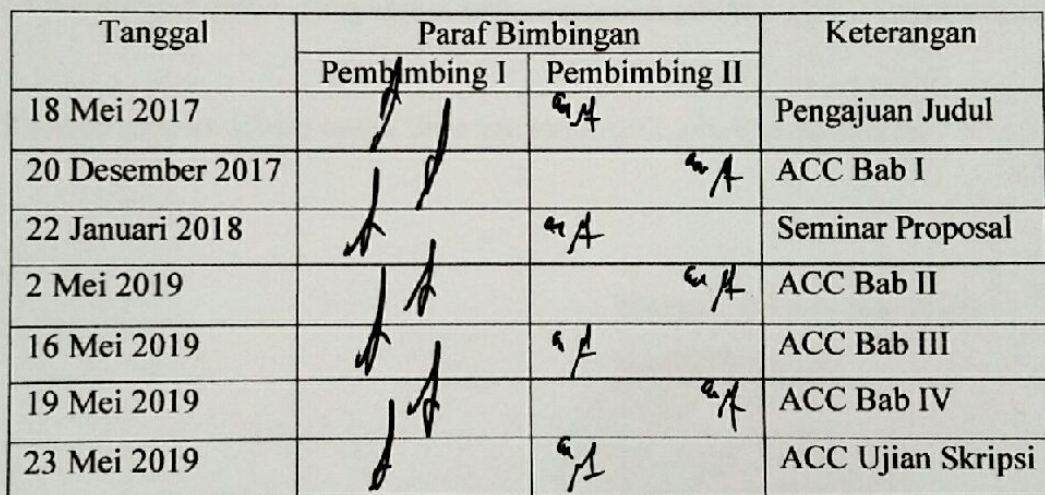 Tanggal Paraf Bimbingan Keterangan
Pembimbing I Pembimbing II
18 Mei 2017 Pengajuan Judul
20 Desember 2017 ACC Bab I
22 Januari 2018 Seminar Proposal
2 Mei 2019 ACC Bab II
16 Mei 2019 ACC Bab III
19 Mei 2019 ACC Bab IV
23 Mei 2019 ACC Ujian Skripsi